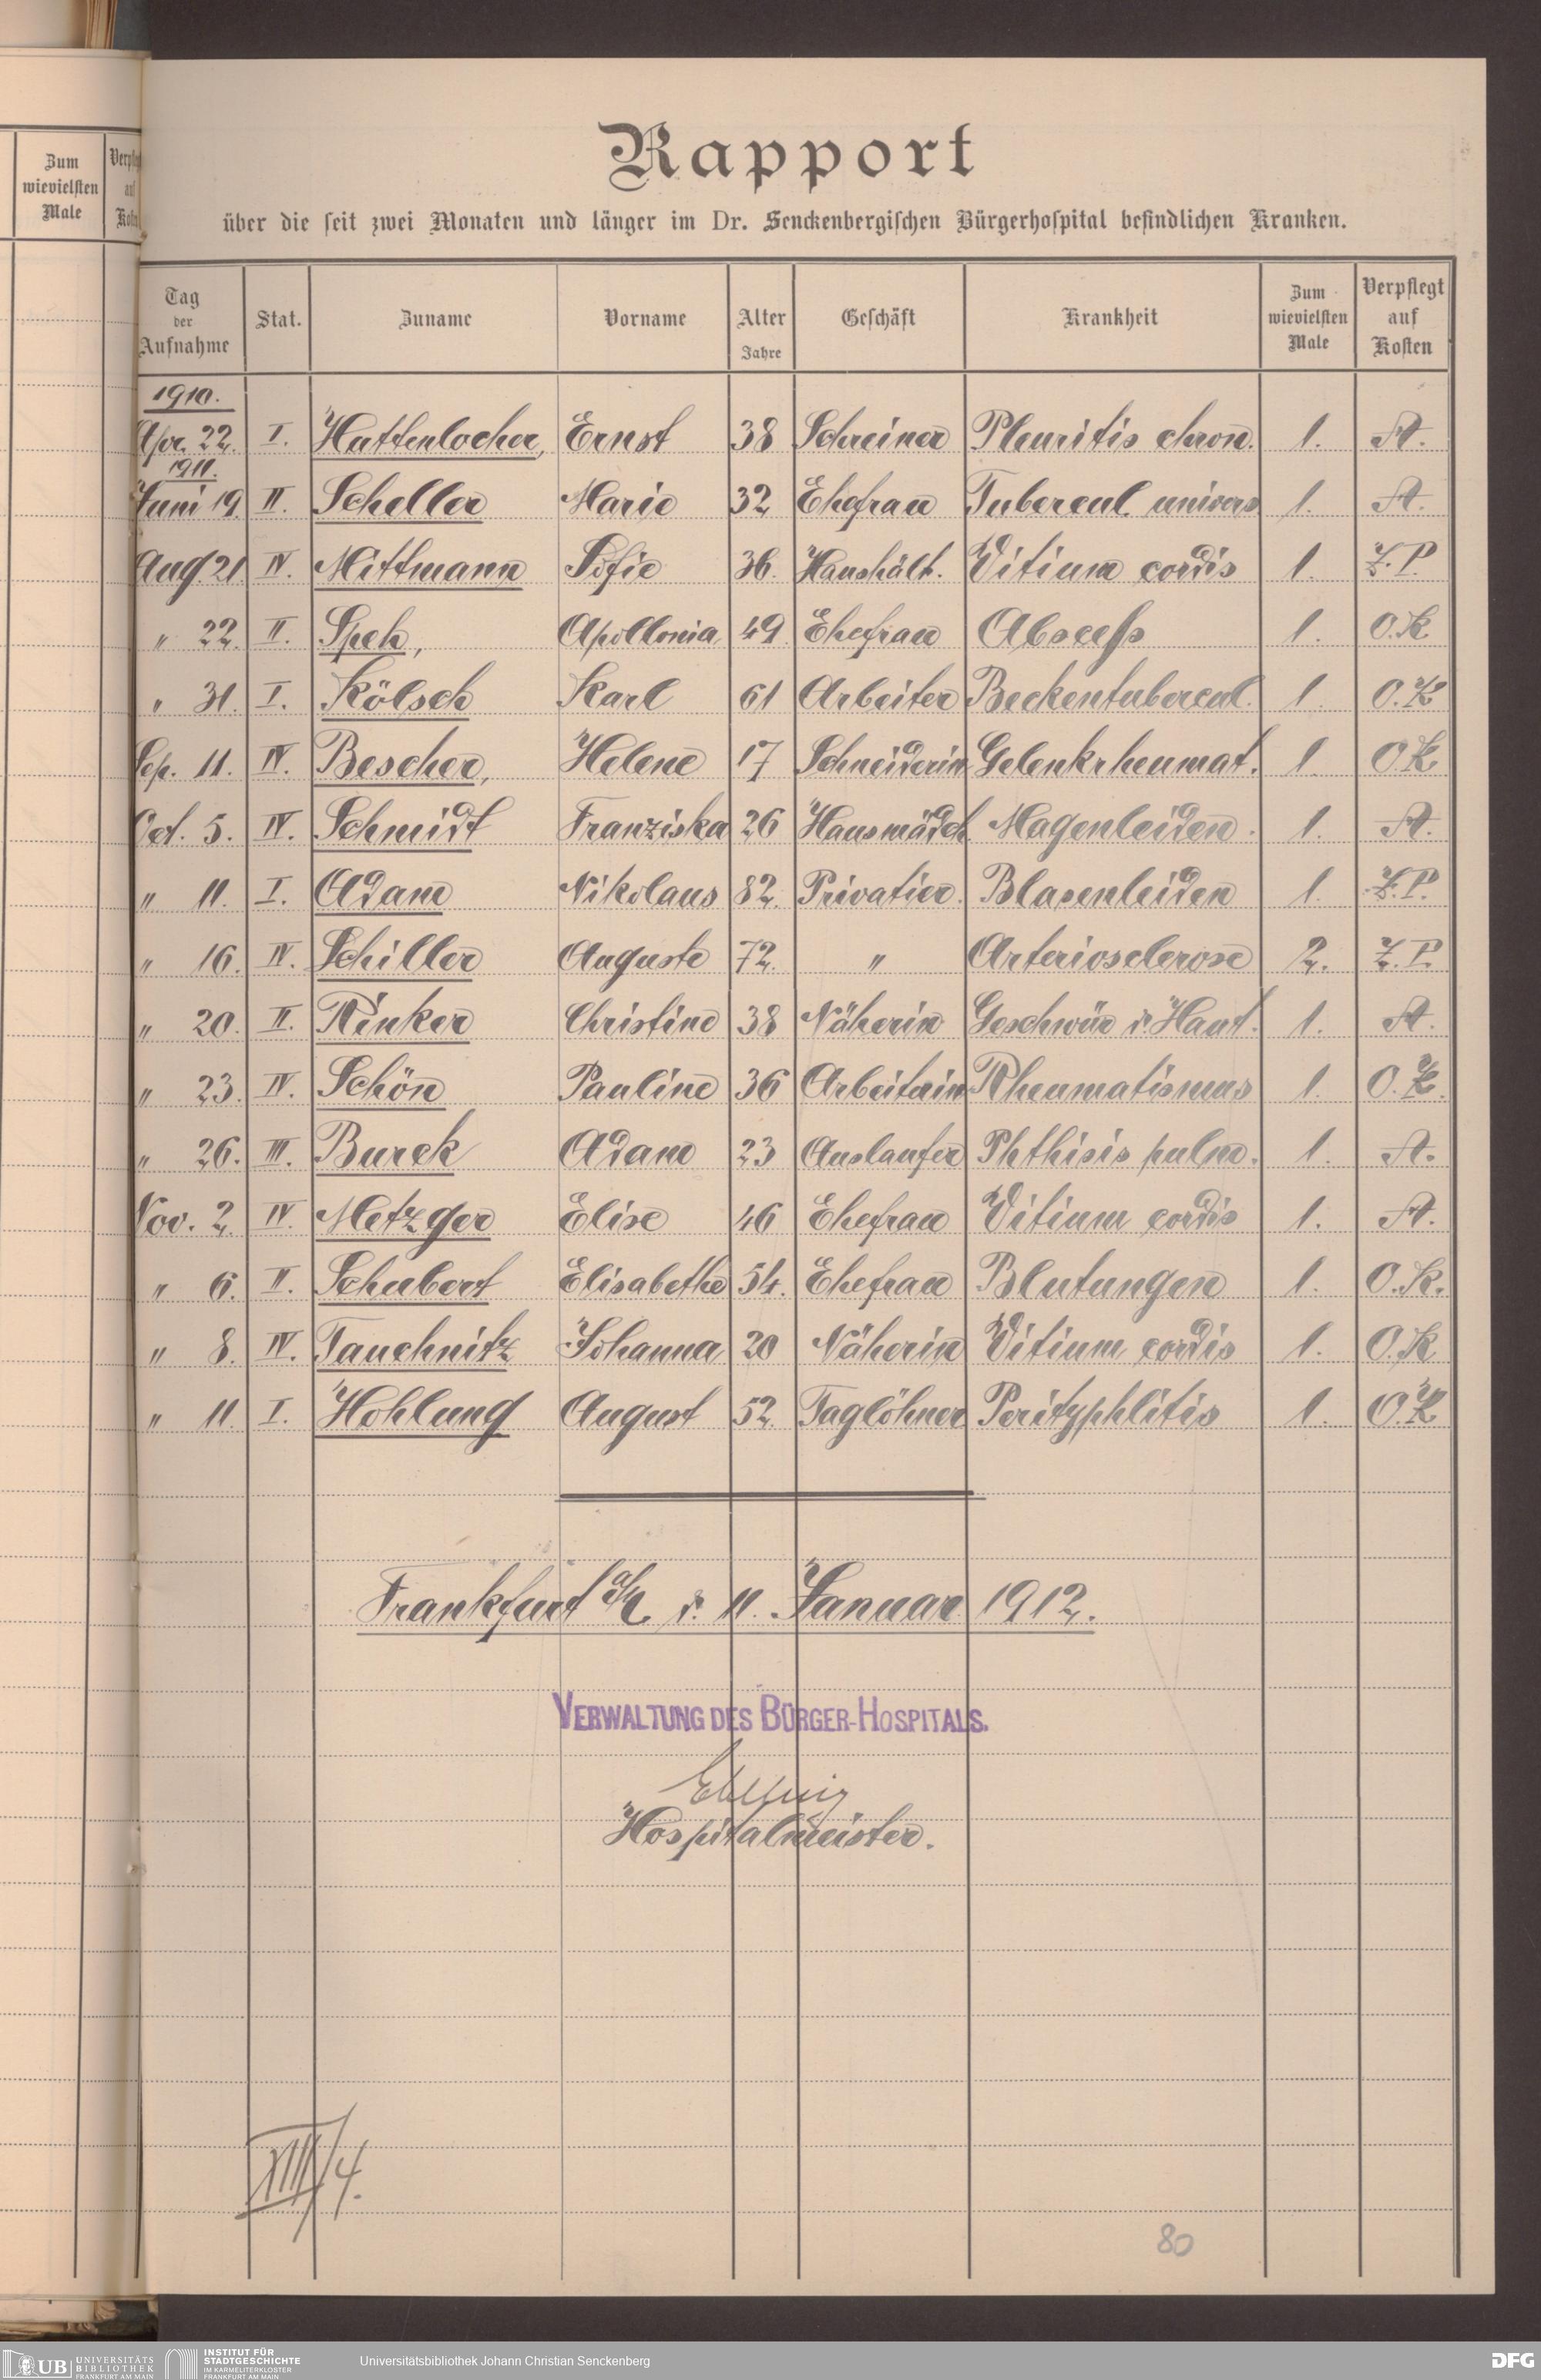 Zum
wievielsten
Male
Rapport
über die seit zwei Monaten und länger im Dr. Senckenbergischen Bürgerhospital befindlichen Kranken.
Tag der Aufnahme Stat. Zuname Vorname Alter Jahre Geschäft Krankheit Zum wievielsten Male Verpflegt auf Kosten
1910.
Apr. 22. I. Hattenlocher, Ernst 38 Schreiner Pleuritis chron. 1. St.
1911.
Juni 19. II. Scheller Marie 32 Ehefrau Tubercul. univers 1. St.
Aug. 21 IV. Mittmann Sofie 36. Haushält. Vitium cordis 1. Z. P.
" 22. II. Speh, Apollonia 49 Ehefrau Abscess 1. O. K
" 31. I. Kölsch Karl 61 Arbeiter Beckentubercul. 1. O. K
Sep. 11. IV. Bescher, Helene 17 Schneiderin Gelenkrheumat. 1. O K
Oct. 5. IV. Schmidt Franziska 26 Hausmädch Magenleiden. 1. St.
" 11. I. Adam Nikolaus 82. Privatier. Blasenleiden 1. Z. P.
" 16. IV. Schiller Auguste 72. " Arteriosclerose 2. Z. P.
" 20. II. Rinker Christine 38 Näherin Geschwür d. Haut. 1. St.
" 23. IV. Schön Pauline 36 Arbeiterin Rheumatismus 1. O. K.
" 26. III. Burck Adam 23 Auslaufer Phthisis pulm. 1. St.
Nov. 2. IV. Metzger Elise 46 Ehefrau Vitium cordis 1. St.
" 6. II. Schubert Elisabethe 54. Ehefrau Blutungen 1. O. K.
" 8. IV. Tauchnitz Johanna 20 Näherin Vitium cordis 1. O. K
" 11. I. Hohlung August 52. Taglöhner Perityphlitis 1. O. K
Frankfurt a/M d. 11. Januar 1912.
VERWALTUNG DES BÜRGER-HOSPITALS.
Hospitalmeister.
XIII/4.
80
UB UNIVERSITÄTS BIBLIOTHEK FRANKFURT AM MAIN
INSTITUT FÜR STADTGESCHICHTE IM KARMELITERKLOSTER FRANKFURT AM MAIN
Universitätsbibliothek Johann Christian Senckenberg
DFG